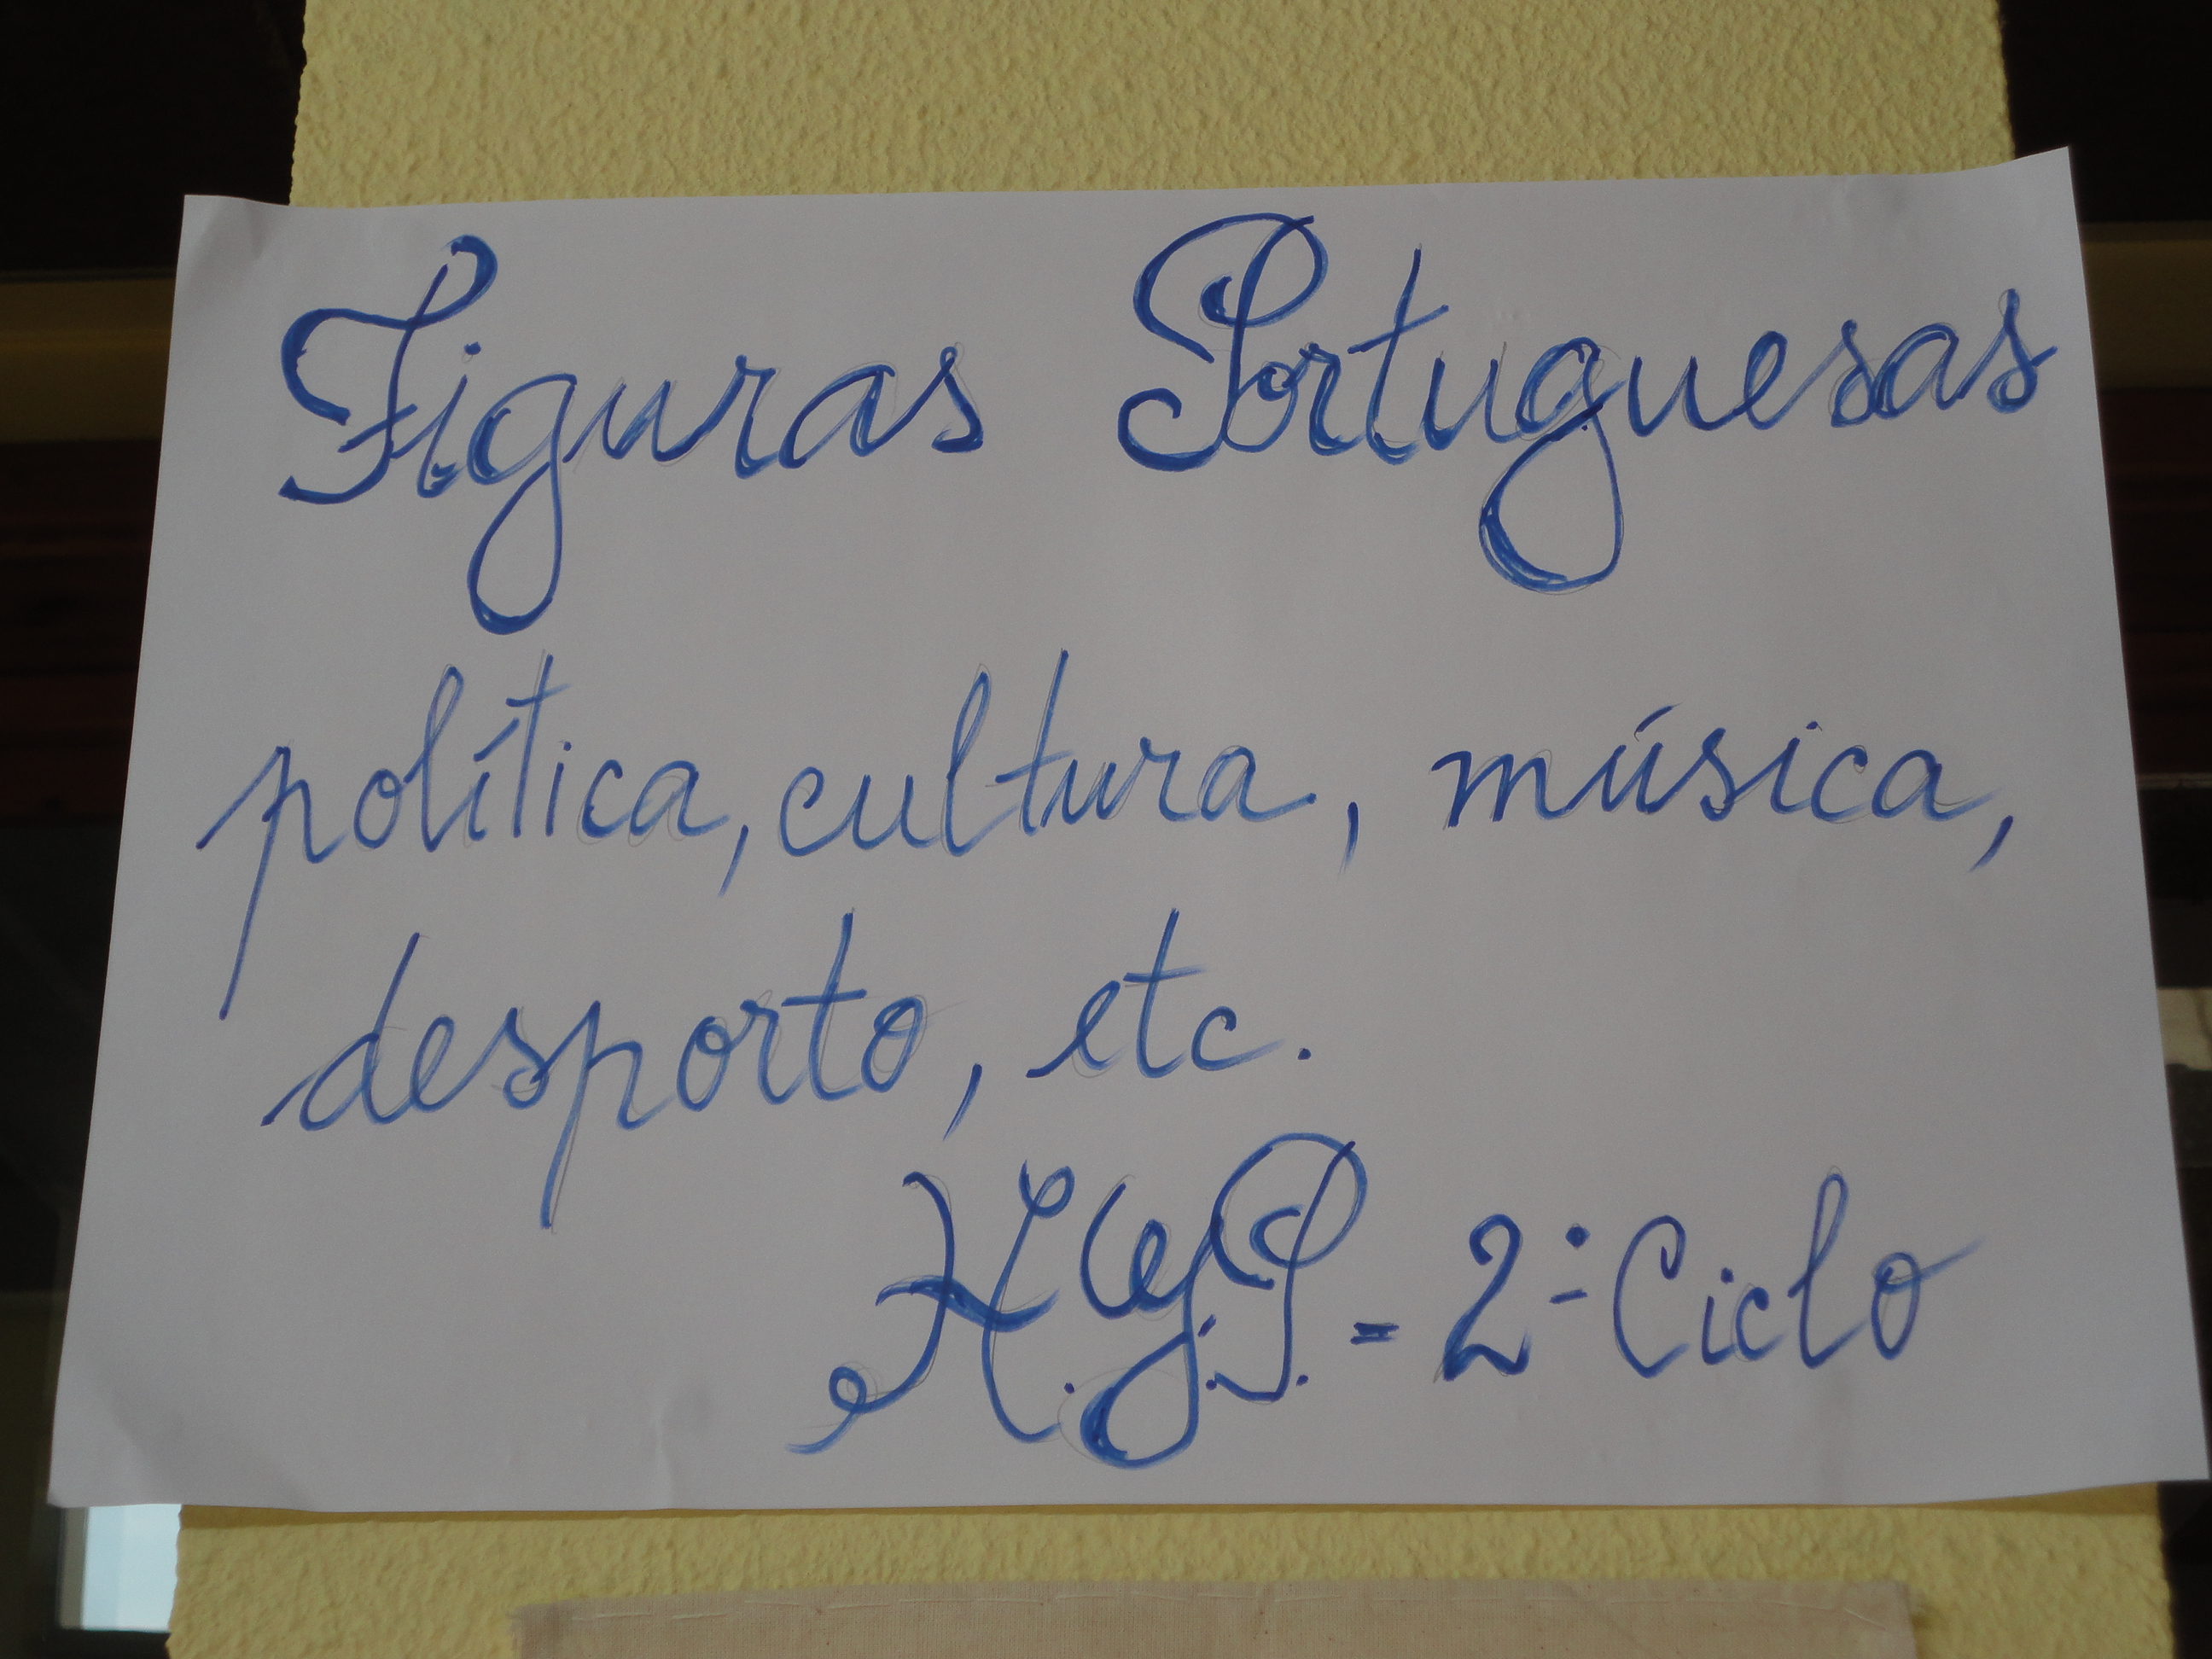 Figuras Portuguesas
política, cultura, música,
desporto, etc.
H.G.P. = 2º Ciclo